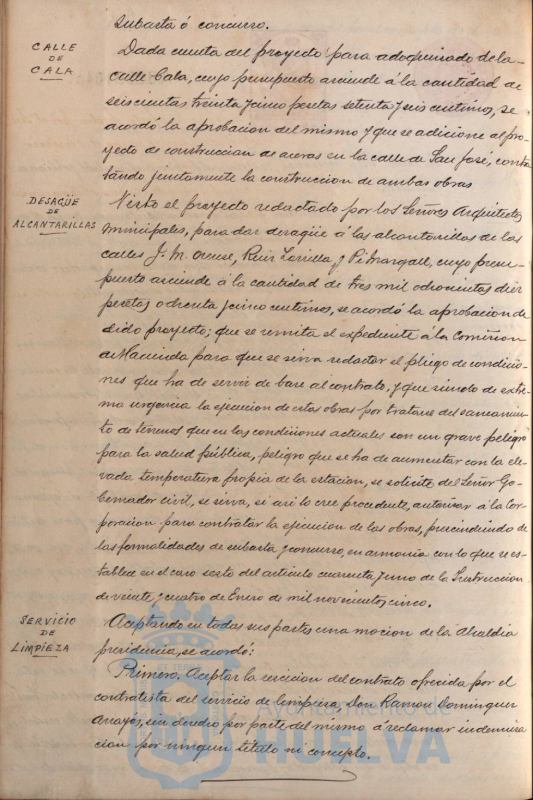 subasta ó concurso.
CALLE
DE
CALA
Dada cuenta del proyecto para adoquinado de la
calle Cala, cuyo presupuesto asciende á la cantidad de
seiscientas treinta y cinco pesetas setenta y seis centimos, se
acordó la aprobacion del mismo y que se adicione al pro-
yecto de construccion de aceras en la calle de San José, contra
tándo juntamente la construccion de ambas obras
DESAGÜE
DE
ALCANTARILLAS
Visto el proyecto redactado por los Señores Arquitectos
municipales, para dar desagüe á las alcantarillas de las
calles J. M. Orense, Ruiz Zorrilla y Pi Margall, cuyo presu-
puesto asciende á la cantidad de tres mil ochocientas diez
pesetas ochenta y cinco centimos, se acordó la aprobacion de
dicho proyecto; que se remita el expediente á la Comision
de Hacienda para que se sirva redactar el pliego de condicio-
nes que ha de servir de base al contrato, y que siendo de extre-
ma urgencia la ejecucion de estas obras por tratarse del saneamien-
to de terrenos que en las condiciones actuales son un grave peligro
para la salud pública, peligro que se ha de aumentar con la ele-
vada temperatura propia de la estacion, se solicite del Señor Go-
bernador civil, se sirva, si asi lo cree procedente, autorizar á la Cor-
poracion para contratar la ejecucion de las obras, prescindiendo de
las formalidades de subasta y concurso, en armonia con lo que se es-
tablece en el caso sexto del articulo cuarenta y uno de la Instruccion
de veinte y cuatro de Enero de mil novecientos cinco.
SERVICIO
DE
LIMPIEZA
Aceptando en todas sus partes una mocion de la Alcaldia
presidencia, se acordó:
Primero. Aceptar la rescision del contrato ofrecida por el
contratista del servicio de limpieza, Don Ramon Dominguez
sin derecho por parte del mismo á reclamar indemniza
cion por ningun titulo ni concepto.
Ayuntamiento de
HUELVA